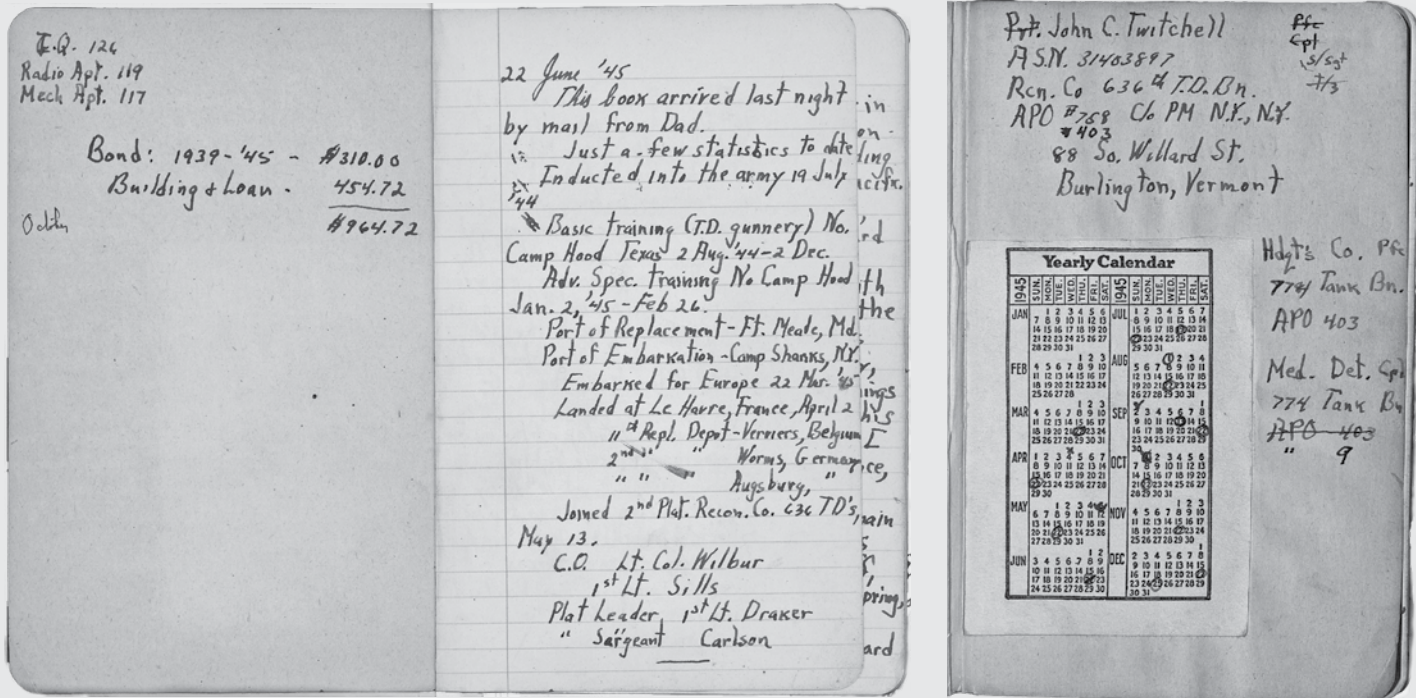 I.Q. 126
Radio Apt. 119
Mech Apt. 117
Bond: 1939-'45 - $510.00
Building & Loan - 454.72
$964.72
22 June '45
This book arrived last night
by mail from Dad.
Just a few statistics to date
Inducted into the army 19 July
'44
Basic training (T.D. gunnery) No.
Camp Hood Texas 2 Aug. '44-2 Dec.
Adv. Spec. training No Camp Hood
Jan. 2, '45 - Feb 26.
Port of Replacement - Ft. Meade, Md.
Port of Embarkation - Camp Shanks, N.Y.
Embarked for Europe 22 Mar. '45
Landed at Le Havre, France, April 2
11th Repl. Depot - Verviers, Belgium
2nd " " Worms, Germany
" " Augsburg, "
Joined 2nd Plat. Recon. Co. 636 TD's
May 13.
C.O. Lt. Col. Wilbur
1st Lt. Sills
Plat Leader 1st Lt. Draker
" Sargeant Carlson
in
on
ding
rd
th
the
ings
his
I
ce,
pring,
ard
Pvt. John C. Twitchell
Pfc
Cpl
S/Sgt
T/3
A.S.N. 31403897
Rcn. Co 636th T.D. Bn.
APO #758 C/o PM N.Y., N.Y.
#403
88 So. Willard St.
Burlington, Vermont
Yearly Calendar
1945 SUN. MON. TUE. WED. THU. FRI. SAT. 1945 SUN. MON. TUE. WED. THU. FRI. SAT.
JAN JUL
FEB AUG
MAR SEP
APR OCT
MAY NOV
JUN DEC
Hdqt's Co. Pfc
774 Tank Bn.
APO 403
Med. Det. Cpl
774 Tank Bn
APO 403
" 9